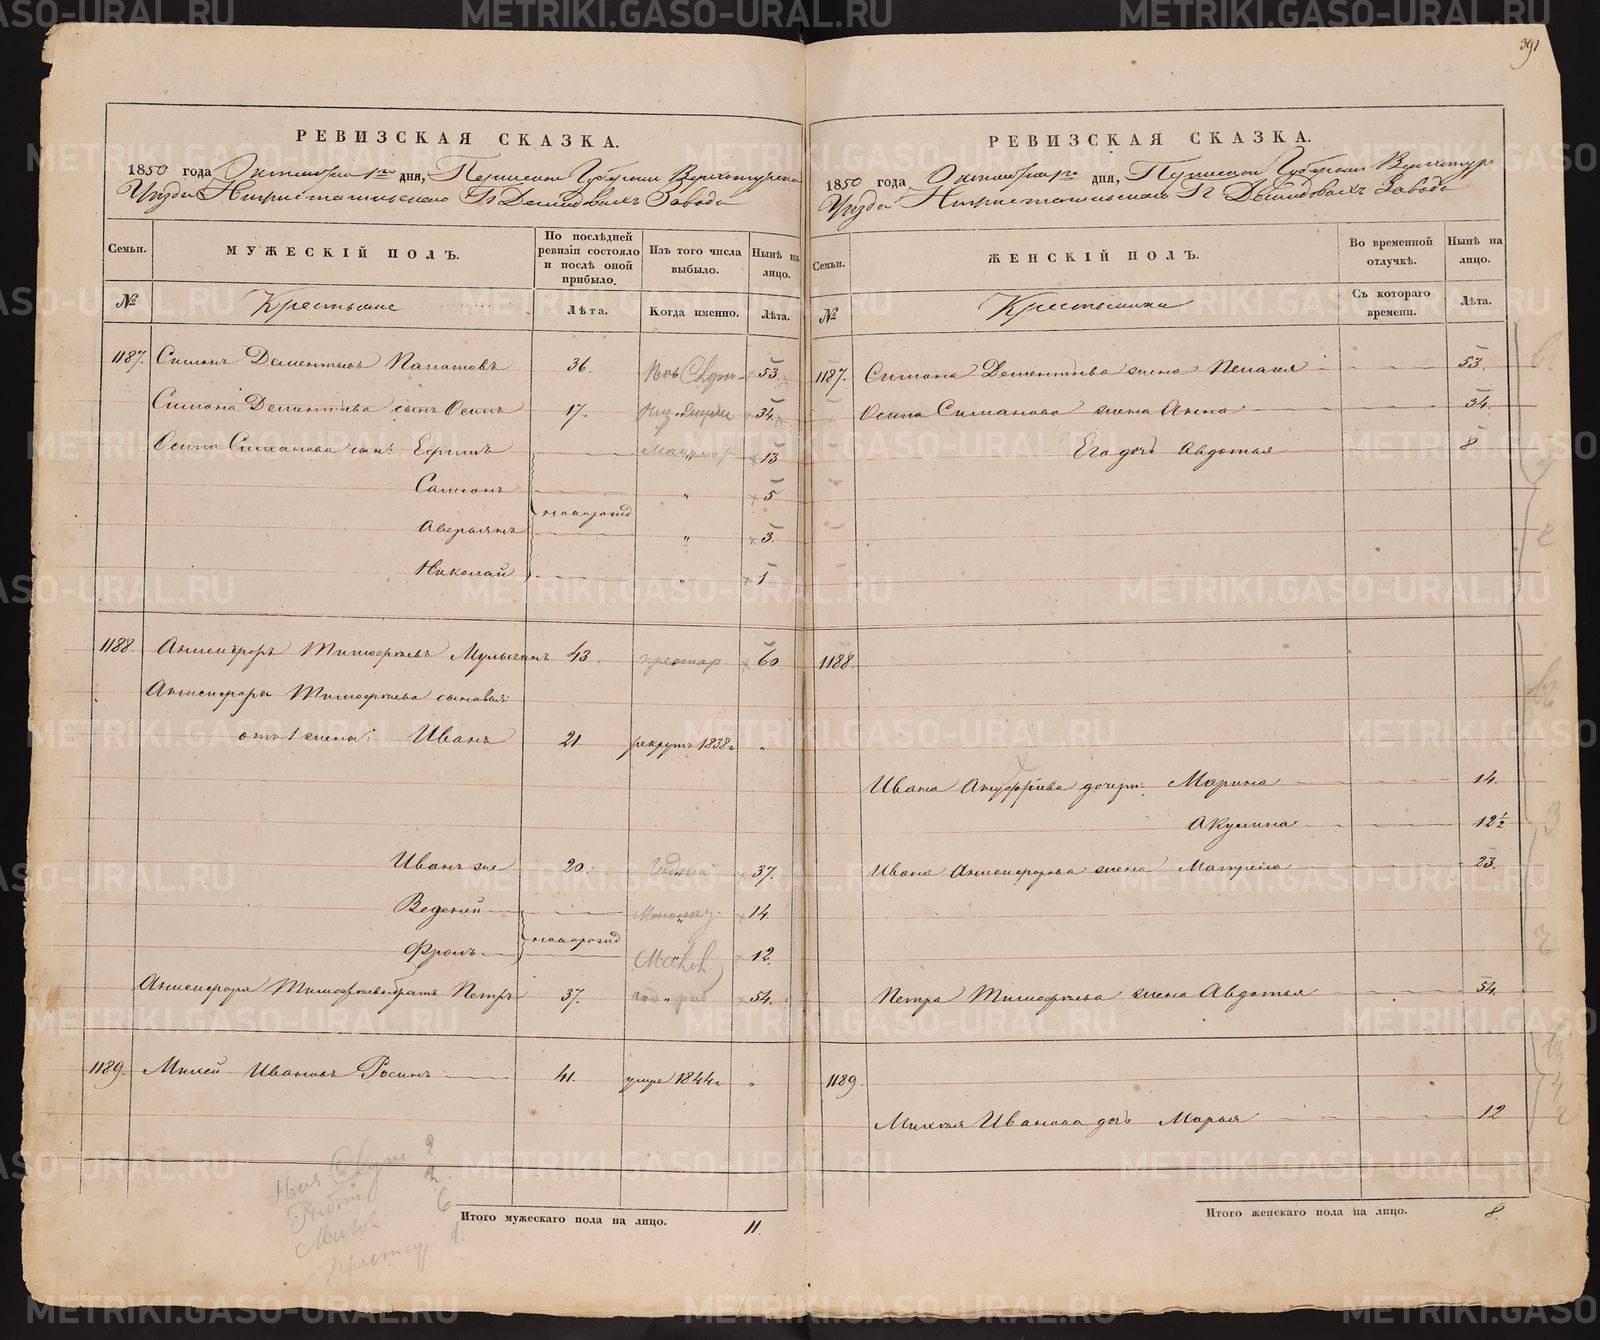 391
РЕВИЗСКАЯ СКАЗКА.
1850 года Октября 1го дня, Пермской Губернии Верхотурскаго
Уезда Нижнетагильскаго Гг Демидовыхъ Завода
Семьи. МУЖЕСКІЙ ПОЛЪ. По послѣдней ревизіи состояло и послѣ оной прибыло. Изъ того числа выбыло. Нынѣ на лицо.
№ Крестьяне Лѣта. Когда именно. Лѣта.
1187. Симонъ Дементьевъ 36. 53.
Симона Дементьева сынъ Осипъ 17. 34.
Осипа Симанова сын: Ефимъ " 13
Самсонъ " 5
новорожд
Аверьянъ " 3.
Николай " 1
1188. Анисифоръ Тимофеевъ 43. престар 60.
Анисифора Тимофеева сыновья:
отъ 1 жены: Иванъ 21. рекрутъ 1838г "
Иванъ же 20. 37.
Веденей " 14.
новорожд
Фролъ 12.
Анисифора Тимофеева братъ Петръ 37. 54.
1189. Михей Ивановъ Росинъ 41. умре 1844г "
2
2.
6
1.
Итого мужескаго пола на лицо. 11.
РЕВИЗСКАЯ СКАЗКА.
1850 года Октября 1го дня, Пермской Губернии Верхотурс
Уезда Нижнетагильскаго Гг Демидовыхъ Завода
Семьи. ЖЕНСКІЙ ПОЛЪ. Во временной отлучкѣ. Нынѣ на лицо.
№ Крестьянки Съ котораго времени. Лѣта.
1187. Симона Дементьева жена Пелагея 53.
Осипа Симанова жена Анна 34.
Его дочь Авдотья 8
1188.
Ивана дочери: Марина 14.
Акулина 12½
Ивана Анисифорова жена Матрена 23.
Петра Тимофеева жена Авдотья 54.
1189.
Михея Иванова дочь Марья 12
Итого женскаго пола на лицо. 8.
METRIKI.GASO-URAL.RU